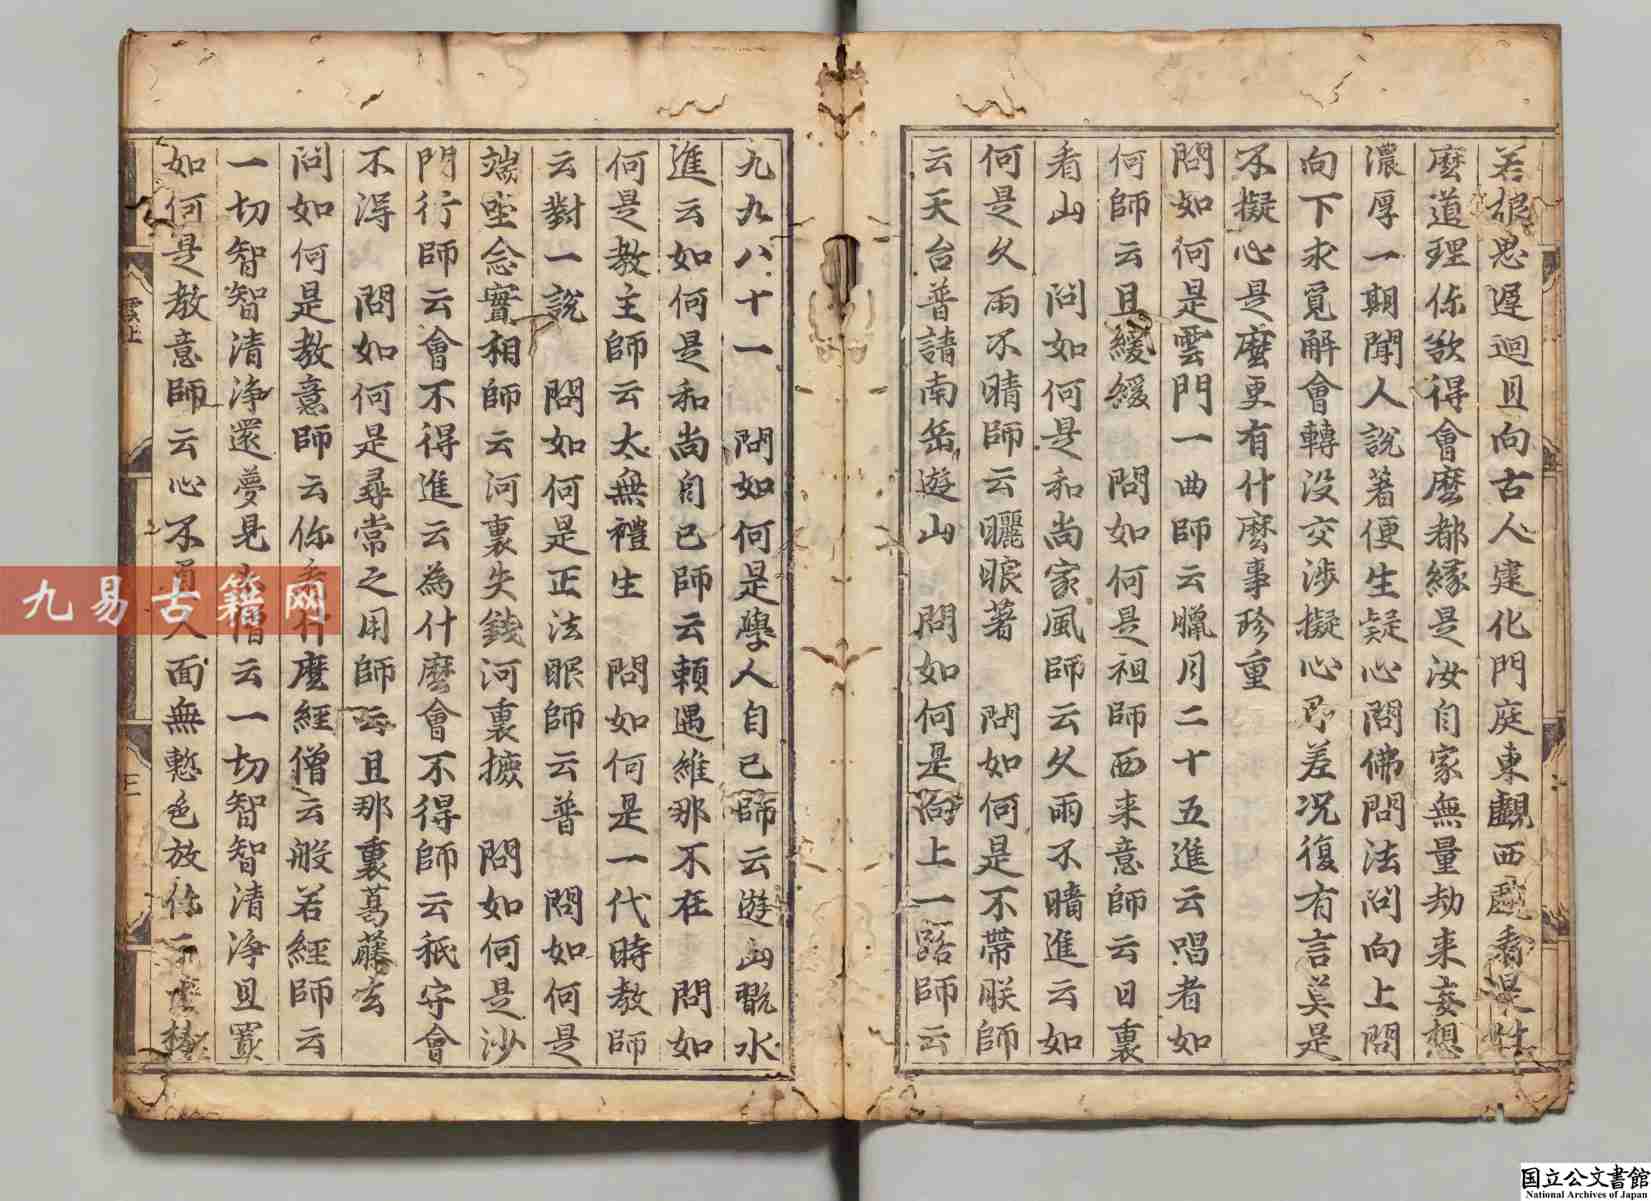 若思遲迴且向古人建化門庭東覷西覷看是
麼道理你欲得會麼都緣是汝自家無量劫来妄想
濃厚一期聞人說著便生疑心問佛問法問向上問
向下求覓解會轉没交涉擬心即差况復有言莫是
不擬心是麼更有什麼事珍重
問如何是雲門一曲師云臘月二十五進云唱者如
何師云且緩緩　問如何是祖師西来意師云日裏
看山　問如何是和尚家風師云久雨不晴進云如
何是久雨不晴師云曬晾著　問如何是不帶朕師
云天台普請南岳遊山　問如何是向上一路師云
九九八十一　問如何是學人自己師云遊山翫水
進云如何是和尚自己師云頼遇維那不在　問如
何是教主師云太無禮生　問如何是一代時教師
云對一說　問如何是正法眼師云普　問如何是
端坐念實相師云河裏失錢河裏摝　問如何是沙
門行師云會不得進云為什麼會不得師云祇守會
不得　問如何是尋常之用師云且那裏葛藤去
問如何是教意師云你看什麼經僧云般若經師云
一切智智清淨還夢見僧云一切智智清淨且置
如何是教意師云心不負人面無慙色放你三十棒
雲上
三
九易古籍网
国立公文書館
National Archives of Japan